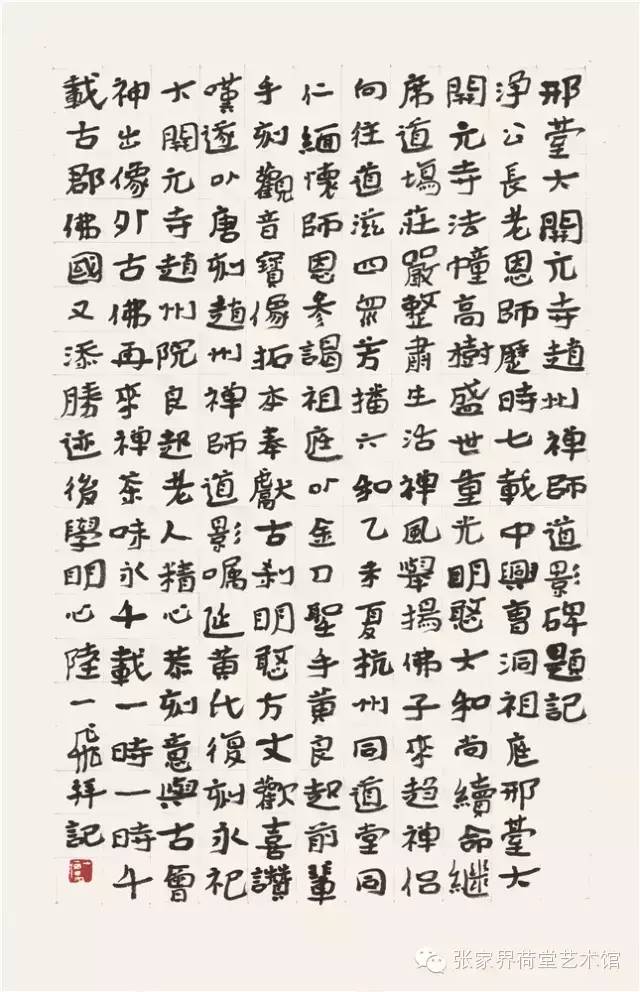 邢臺大開元寺趙州禪師道影碑題記
淨公長老恩師歷時七載中興曹洞祖庭邢臺大
開元寺法幢高樹盛世重光明憨大和尚續命繼
席道場莊嚴整肅生活禪風舉揚佛子來趨禪侶
向往道滋四眾芳播六和乙未夏杭州同道堂同
仁緬懷師恩參謁祖庭以金刀聖手黄良起前輩
手刻觀音寶像拓本奉獻古刹明憨方丈歡喜讚
嘆遂以唐刻趙州禪師道影囑延黄氏復刻永祀
大開元寺趙州院良起老人精心恭刻意與古會
神出像外古佛再來禪茶味永千載一時一時千
載古郡佛國又添勝迹後學明心陸一飛拜記
张家界荷堂艺术馆